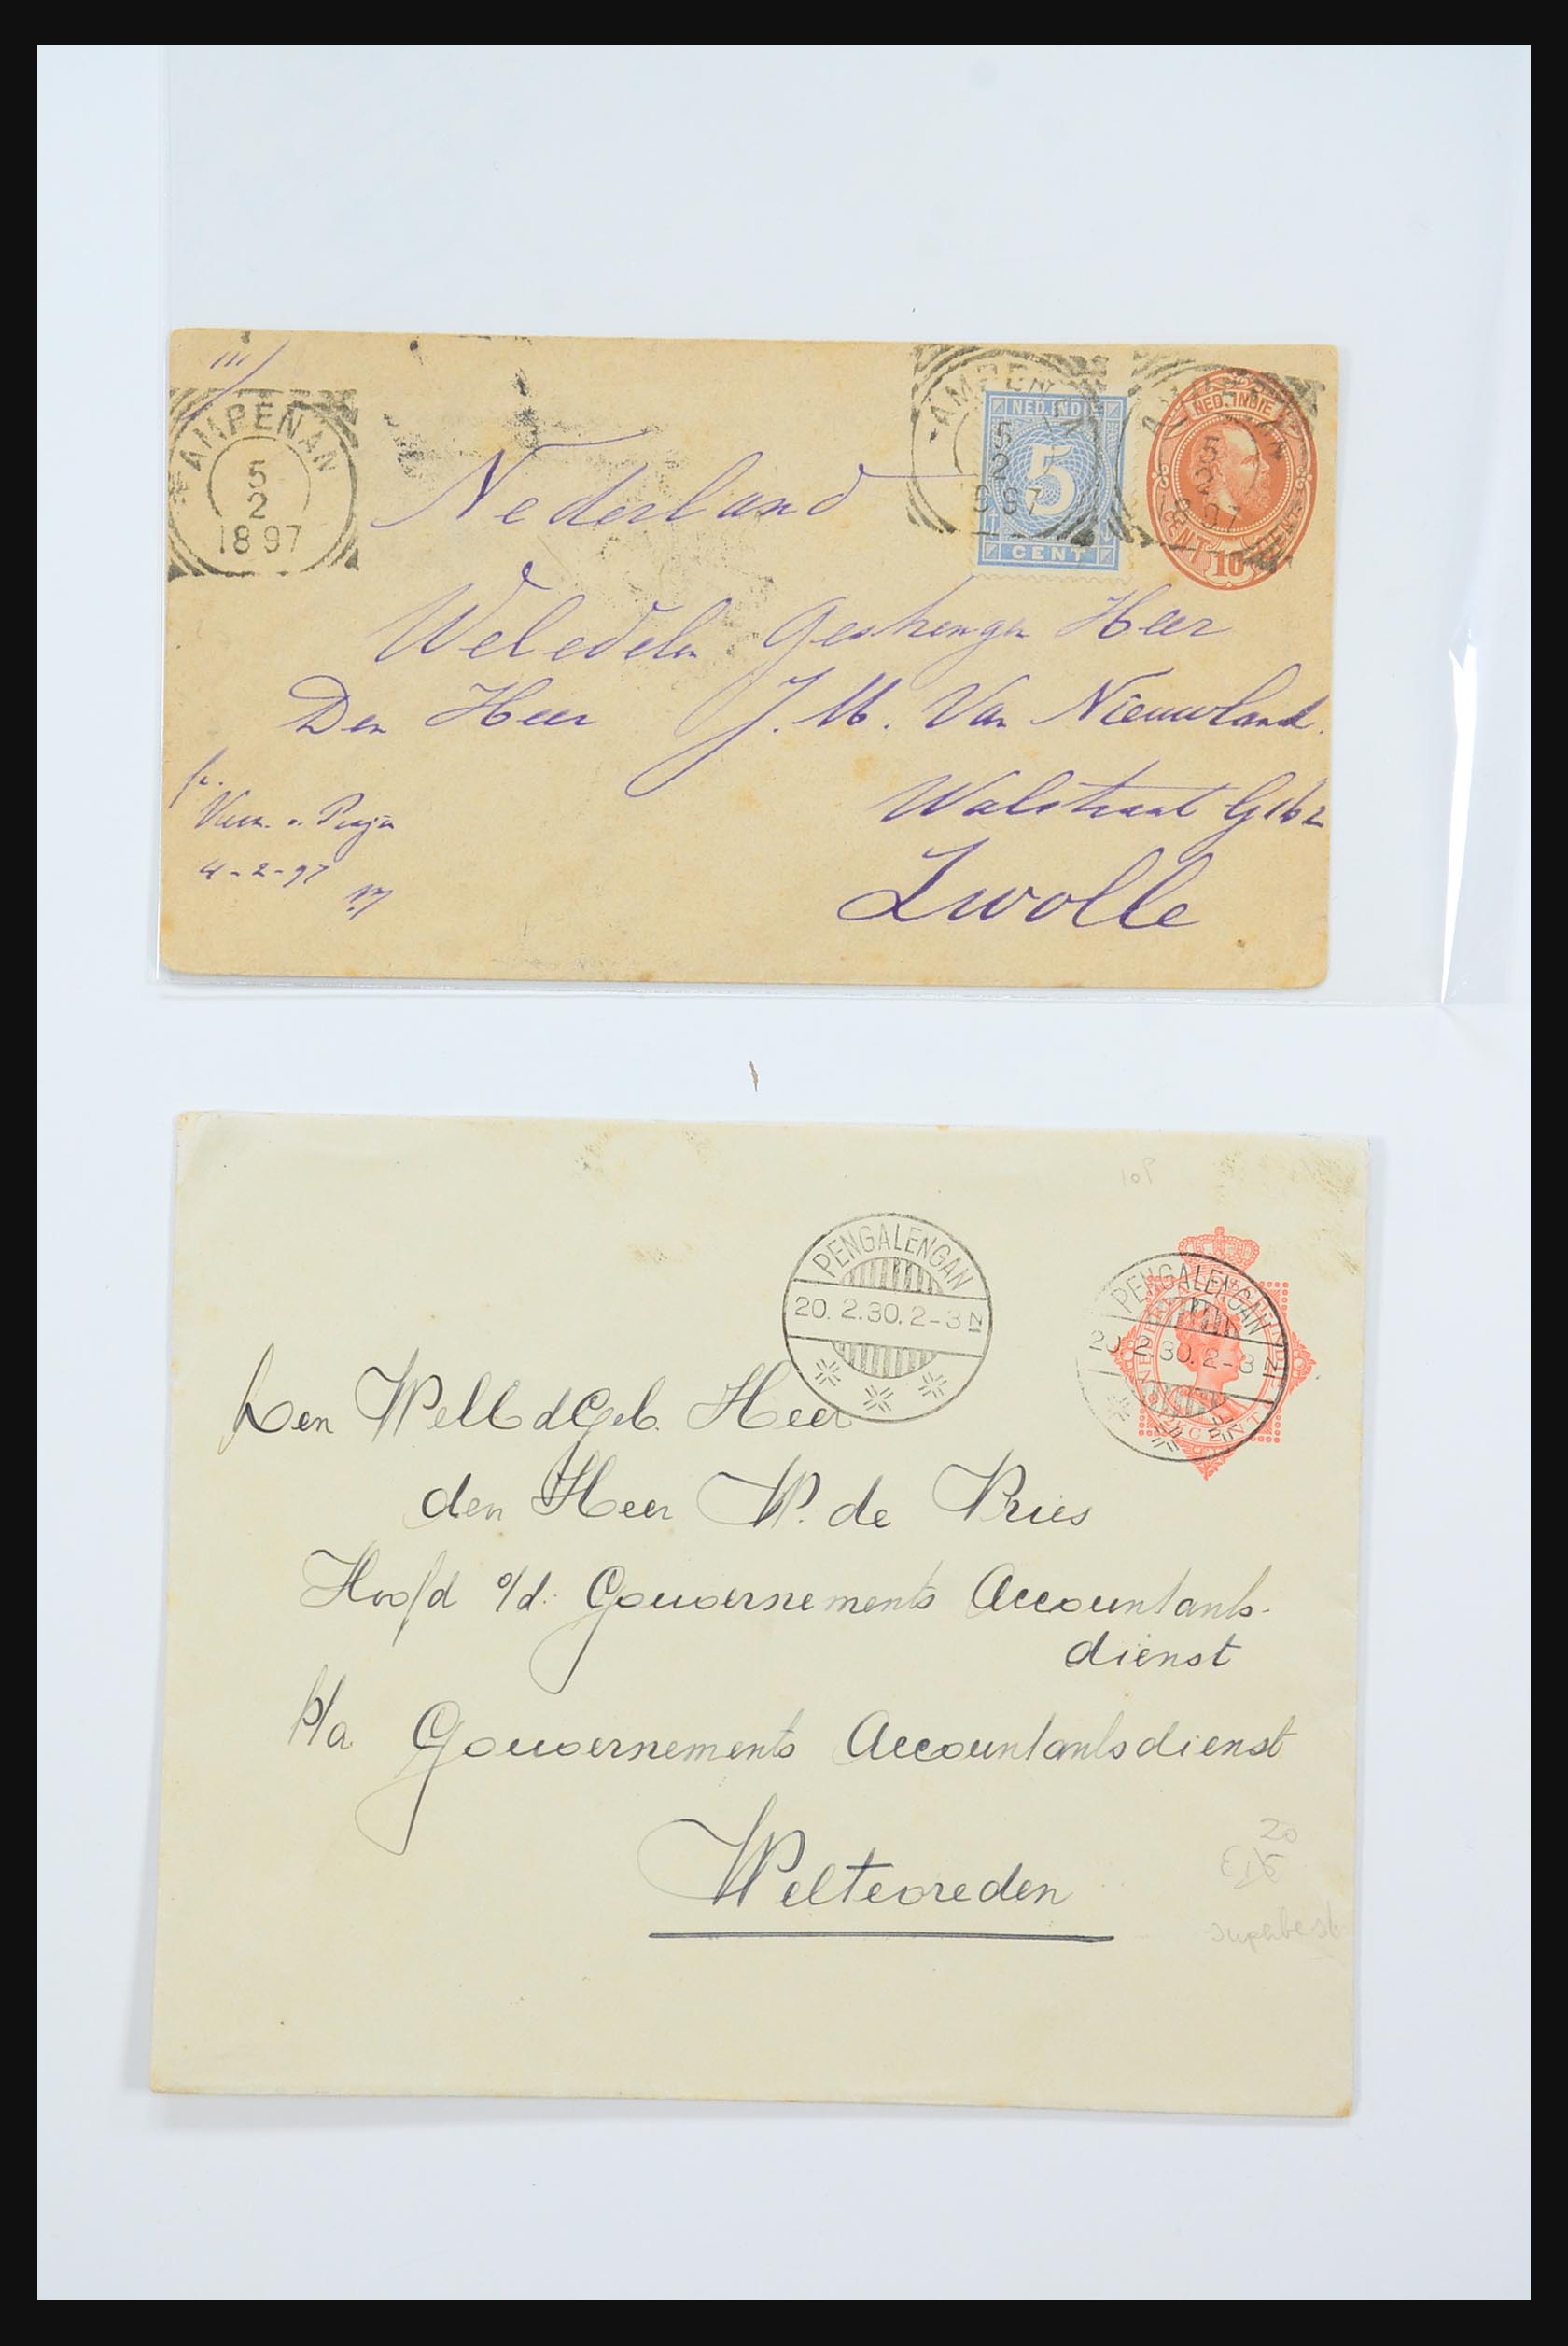 AMPENAN
5
2
1897
AMPENAN
5
2
NED. INDIE
5
CENT
NED. INDIE
CENT
10
CENT
Nederland
Weledelen Gestrengen Heer
Den Heer J. M. Van Nieuwland.
Walstraat G162
Zwolle
4-2-97
109
PENGALENGAN
20.2.30.2-3N
PENGALENGAN
20.2.30.2-3N
CENT
Den WelEdGeb. Heer
den Heer W. de Vries
Hoofd o/d. Gouvernements Accountants-
dienst
p/a. Gouvernements Accountantsdienst
Weltevreden
20